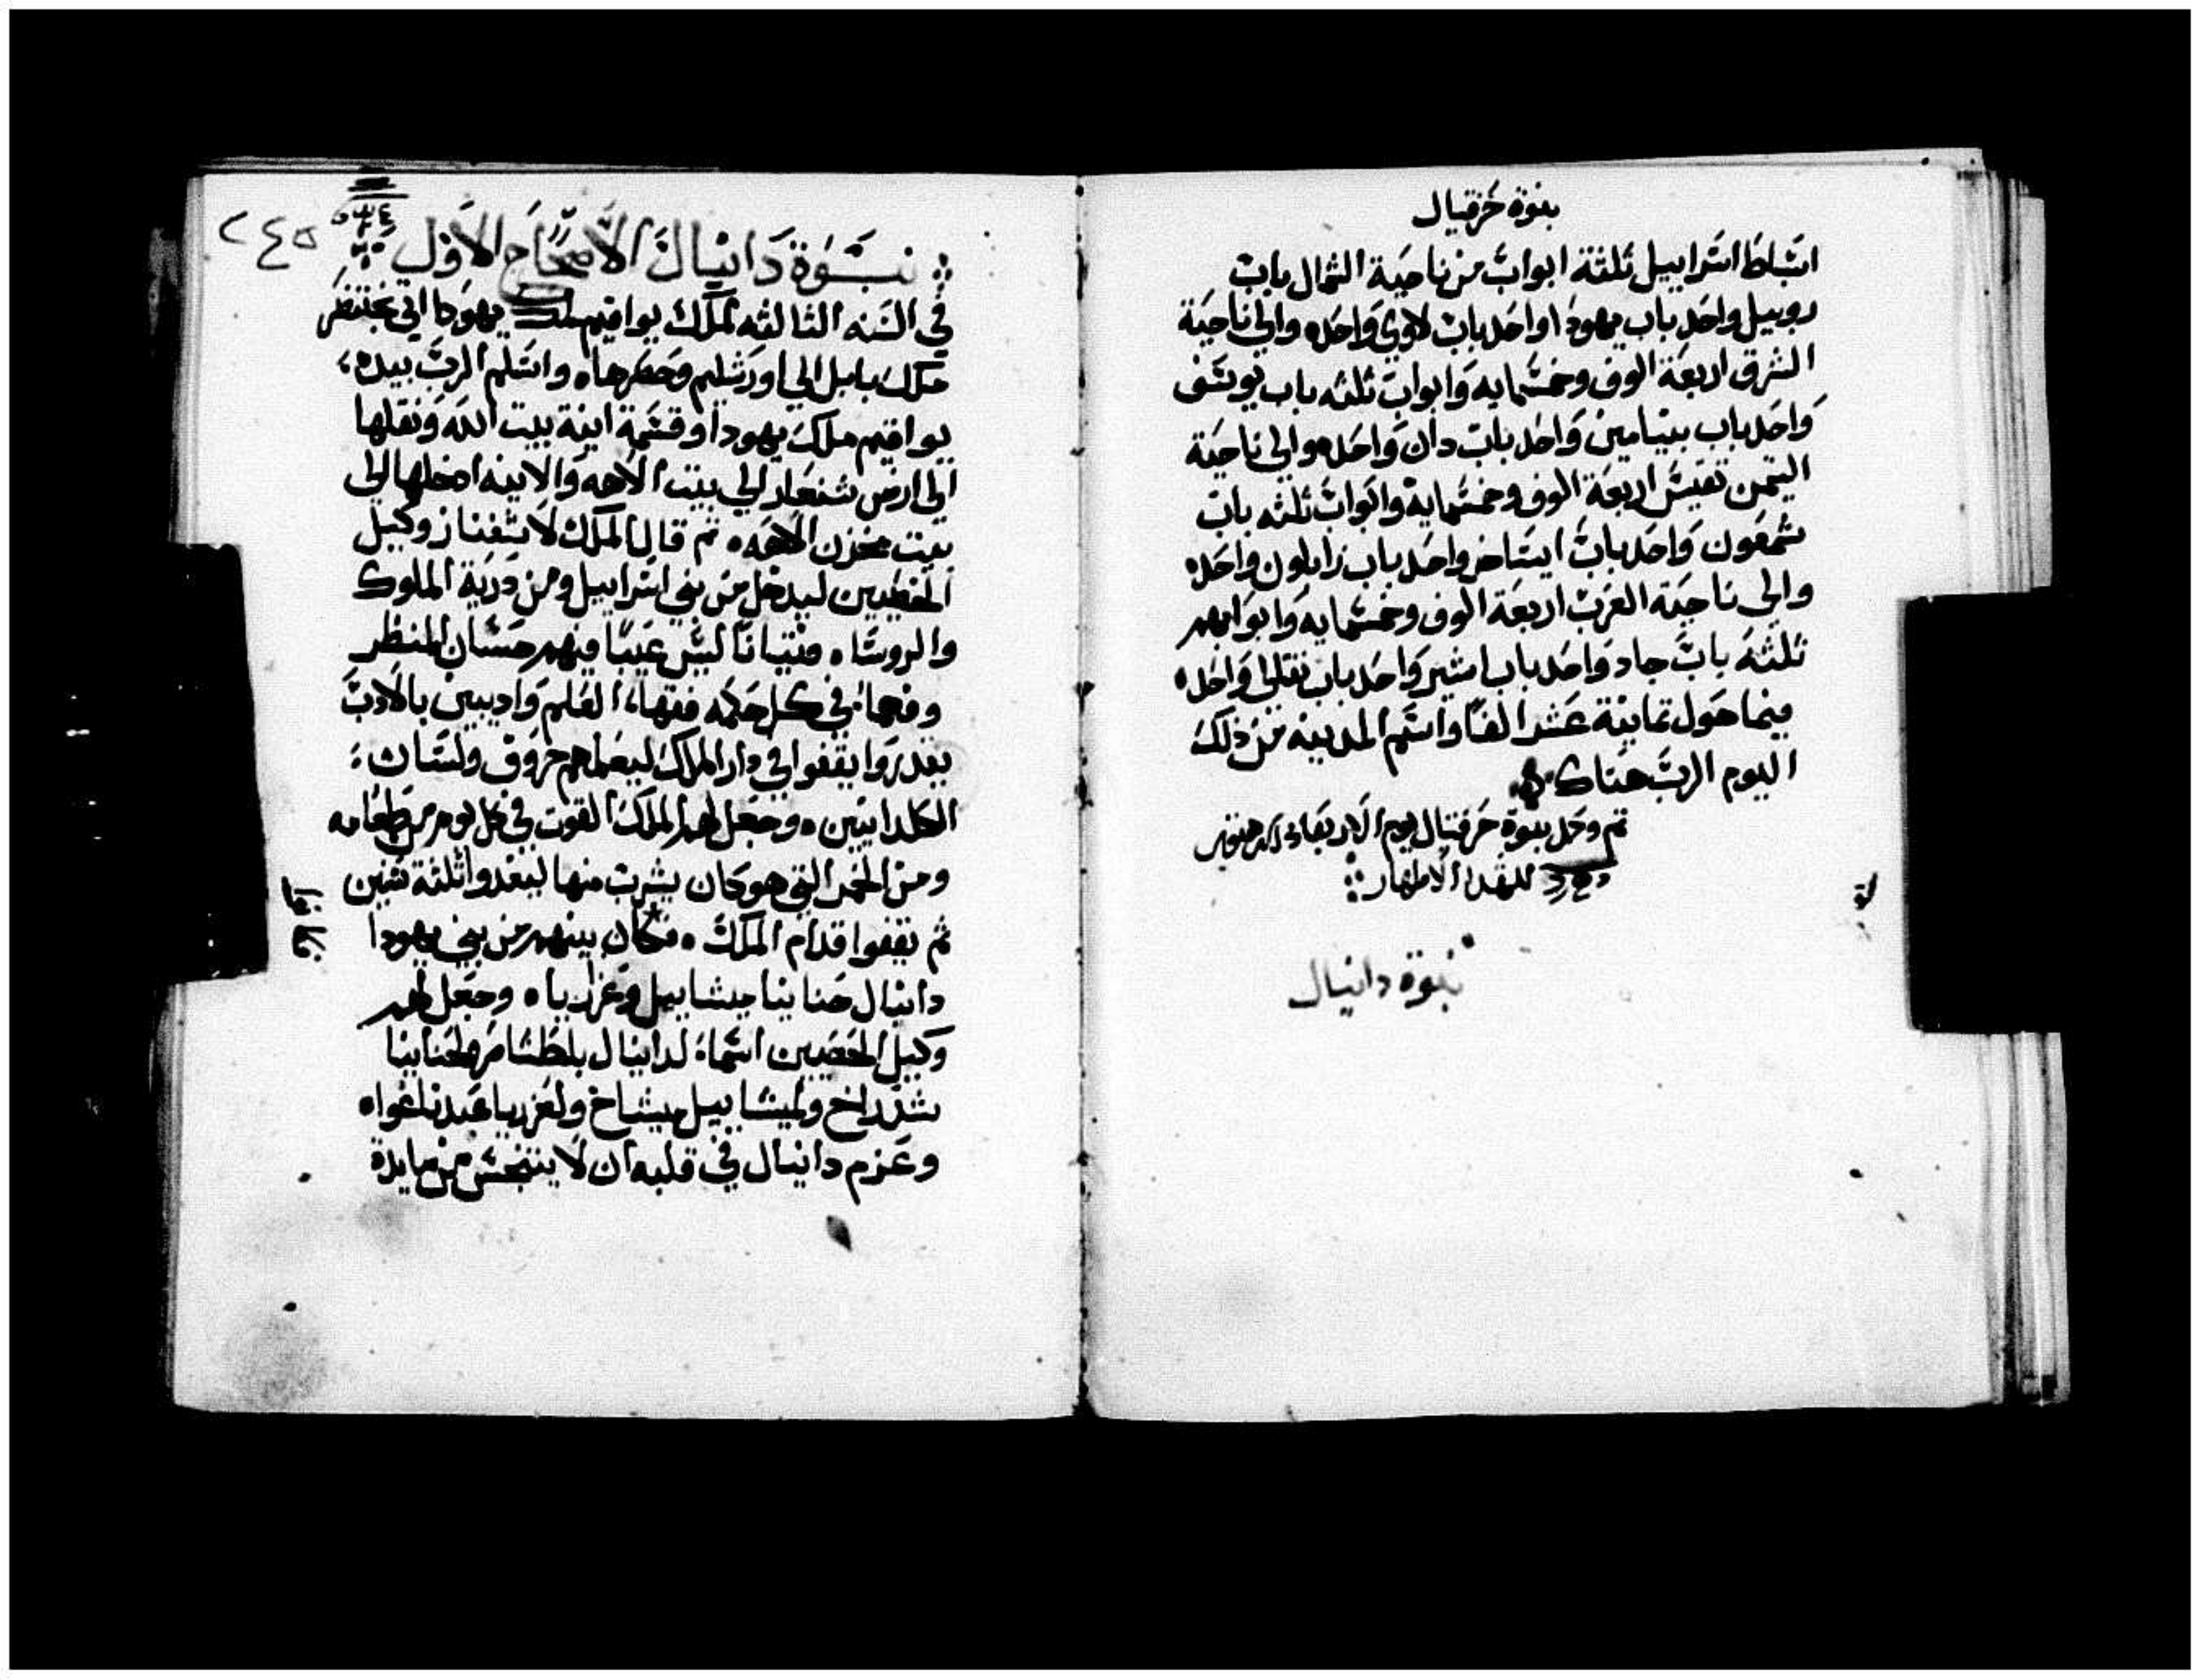 نبوة حزقيال
اسباط اسراييل ثلثة ابواب من ناحية الشمال باب
روبيل واحد باب يهودا واحد باب لاوي واحد۰ والي ناحية
الشرق اربعة الوف وخمسمايه وابواب ثلثه باب يوسف
واحد باب بنيامين واحد باب دان واحد۰ والي ناحية
التيمن تقيس اربعة الوف وخمسماية وابواب ثلثه باب
شمعون واحد باب ايساخر واحد باب زابلون واحد۰
والي ناحية الغرب اربعة الوف وخمسمايه وابوابهم
ثلثه باب جاد واحد باب اشير واحد باب نفتالي واحد۰
فيما حول ثمانية عشر الفا واسم المدينه من ذلك
اليوم الرب هناك
تم وكمل نبوة حزقيال يوم الاربعا
للشهدا الاطهار
نبوة دانيال
٢٤٥
نبوة دانيال الاصحاح الاول
في السنه الثالثه لملك يواقيم ملك يهودا اتي بختنصر
ملك بابل الي اورشليم وحصرها۰ واسلم الرب بيده
يواقيم ملك يهودا وقسمة انية بيت الله ونقلها
الي ارض شنعار الي بيت الاهه والانيه ادخلها الي
بيت مخزن الاهه۰ ثم قال الملك لاسفناز وكيل
الخصيين ليدخل من بني اسراييل ومن درية الملوك
والروسا۰ فتيانا ليس عيبا فيهم حسان المنظر
وفهما في كل حكمه فقها العلم واديبين بالادب
يقدروا يقفوا في دار الملك ليعلمهم حروف ولسان
الكلدانيين۰ وجعل لهم الملك القوت في كل يوم من طعامه
ومن الخمر التي هو كان يشرب منها ليغدوا ثلثة سنين
ثم يقفوا قدام الملك۰ فكان بينهم من بني يهودا
دانيال حنانيا ميشاييل وعزريا۰ وجعل لهم
وكيل الخصيين اسما لدانيال بلطشاصر ولحنانيا
شدراخ ولميشاييل ميشاخ ولعزريا عبدناغوا۰
وعزم دانيال في قلبه ان لا يتنجس من مايدة